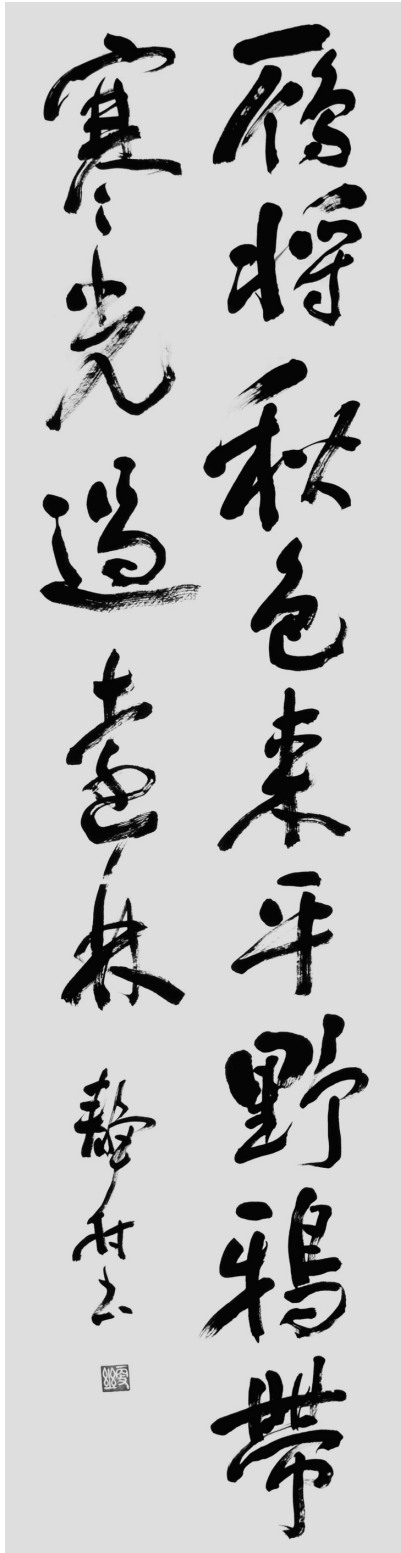 雁將秋色來平野鴉帶
寒光過遠林
靜村书